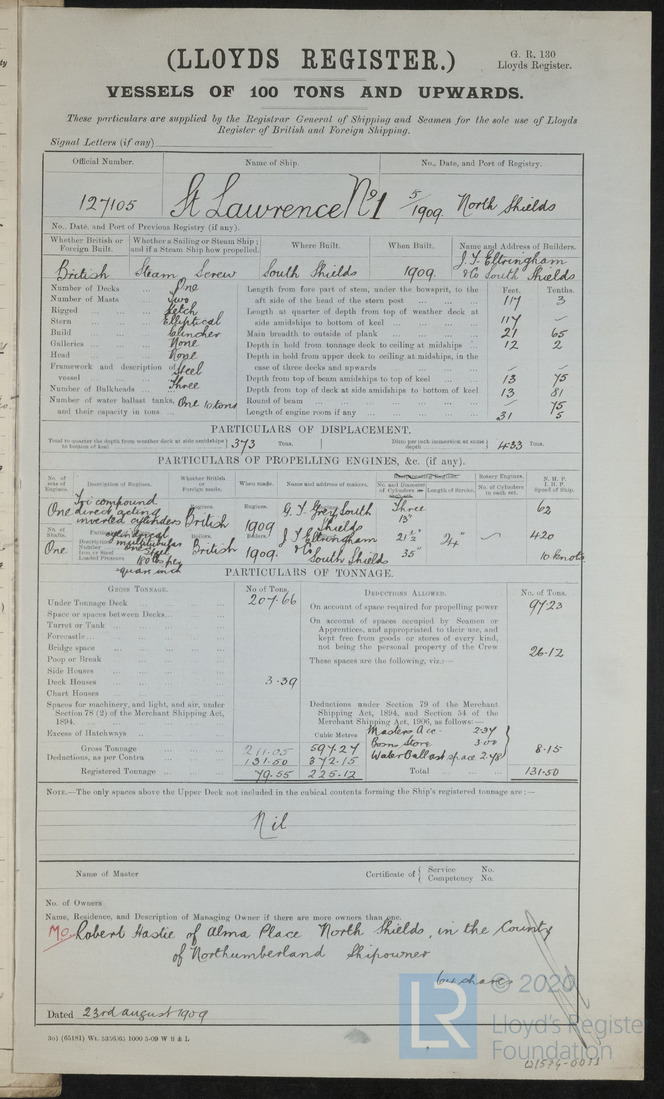 (LLOYDS REGISTER.)
G. R. 130
Lloyds Register.
VESSELS OF 100 TONS AND UPWARDS.
These particulars are supplied by the Registrar General of Shipping and Seamen for the sole use of Lloyds
Register of British and Foreign Shipping.
Signal Letters (if any)
Official Number. Name of Ship. No., Date, and Port of Registry.
127105 St Lawrence No 1 5/1909. North Shields
No., Date, and Port of Previous Registry (if any).
Whether British or Foreign Built. Whether a Sailing or Steam Ship; and if a Steam Ship how propelled. Where Built. When Built. Name and Address of Builders.
British Steam Screw South Shields 1909. J. T. Eltringham & Co South Shields
Number of Decks ... One
Number of Masts ... Two
Rigged ... Ketch
Stern ... Elliptical
Build ... Clincher
Galleries ... None
Head ... None
Framework and description of vessel ... Steel
Number of Bulkheads ... Three
Number of water ballast tanks, and their capacity in tons ... One 10 tons
Feet. Tenths.
Length from fore part of stem, under the bowsprit, to the
aft side of the head of the stern post ... 117 3
Length at quarter of depth from top of weather deck at
side amidships to bottom of keel ... 117 -
Main breadth to outside of plank ... 21 65
Depth in hold from tonnage deck to ceiling at midships ... 12 2
Depth in hold from upper deck to ceiling at midships, in the
case of three decks and upwards ... - -
Depth from top of beam amidships to top of keel ... 13 75
Depth from top of deck at side amidships to bottom of keel 13 81
Round of beam ... - 75
Length of engine room if any ... 31 5
PARTICULARS OF DISPLACEMENT.
Total to quarter the depth from weather deck at side amidships to bottom of keel 373 Tons. Ditto per inch immersion at same depth 4.33 Tons.
PARTICULARS OF PROPELLING ENGINES, &c. (if any).
No. of sets of Engines. Description of Engines. Whether British or Foreign made. When made. Name and address of makers. Reciprocating Engines. Rotary Engines. N. H. P.
No. and Diameter of Cylinders Length of Stroke. No. of Cylinders in each set. I. H. P.
Speed of Ship.
One Tri compound direct acting inverted cylinders
Engines. British Engines. 1909 G. T. Grey South Shields Three 13" 62
No. of Shafts. One
cylindrical multitubular
Number One
Iron or Steel Steel
Loaded Pressure 180 lbs per square inch
Boilers. British Boilers. 1909. J T Eltringham & Co South Shields 21 ½" 35" 24" - 420
10 knots
PARTICULARS OF TONNAGE.
GROSS TONNAGE. No of Tons.
Under Tonnage Deck ... 207.66
Space or spaces between Decks...
Turret or Tank ...
Forecastle...
Bridge space
Poop or Break
Side Houses
Deck Houses 3.39
Chart Houses
Spaces for machinery, and light, and air, under
Section 78 (2) of the Merchant Shipping Act,
1894.
Excess of Hatchways ...
Cubic Metres
Gross Tonnage 211.05 597.27
Deductions, as per Contra 131.50 372.15
Registered Tonnage 79.55 225.12
DEDUCTIONS ALLOWED. No. of Tons.
On account of space required for propelling power 97.23
On account of spaces occupied by Seamen or
Apprentices, and appropriated to their use, and
kept free from goods or stores of every kind,
not being the personal property of the Crew 26.12
These spaces are the following, viz:—
Deductions under Section 79 of the Merchant
Shipping Act, 1894, and Section 54 of the
Merchant Shipping Act, 1906, as follows:—
Masters Acc. 2.37
Bosn Store 3.00
Water Ballast space 2.78 8.15
Total ... 131.50
NOTE.—The only spaces above the Upper Deck not included in the cubical contents forming the Ship's registered tonnage are:—
Nil
Name of Master Certificate of { Service No.
Competency No.
No. of Owners
Name, Residence, and Description of Managing Owner if there are more owners than one.
Mo. Robert Hastie of Alma Place North Shields, in the County
of Northumberland Shipowner
64 shares
Dated 23rd august 1909
3o) (65181) Wt. 5356/65 1000 5-09 W B & L
LR © 2020
Lloyd's Register
Foundation